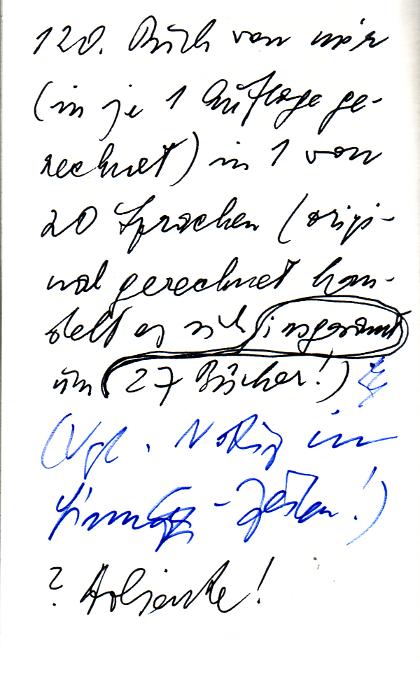 120. Buch von mir
(in je 1 Auflage ge-
rechnet) in 1 von
20 Sprachen (origi-
nal gerechnet han-
delt es sich insgesamt
um 27 Bücher!)
(Vgl. Notiz in
-Zeiten!)
?